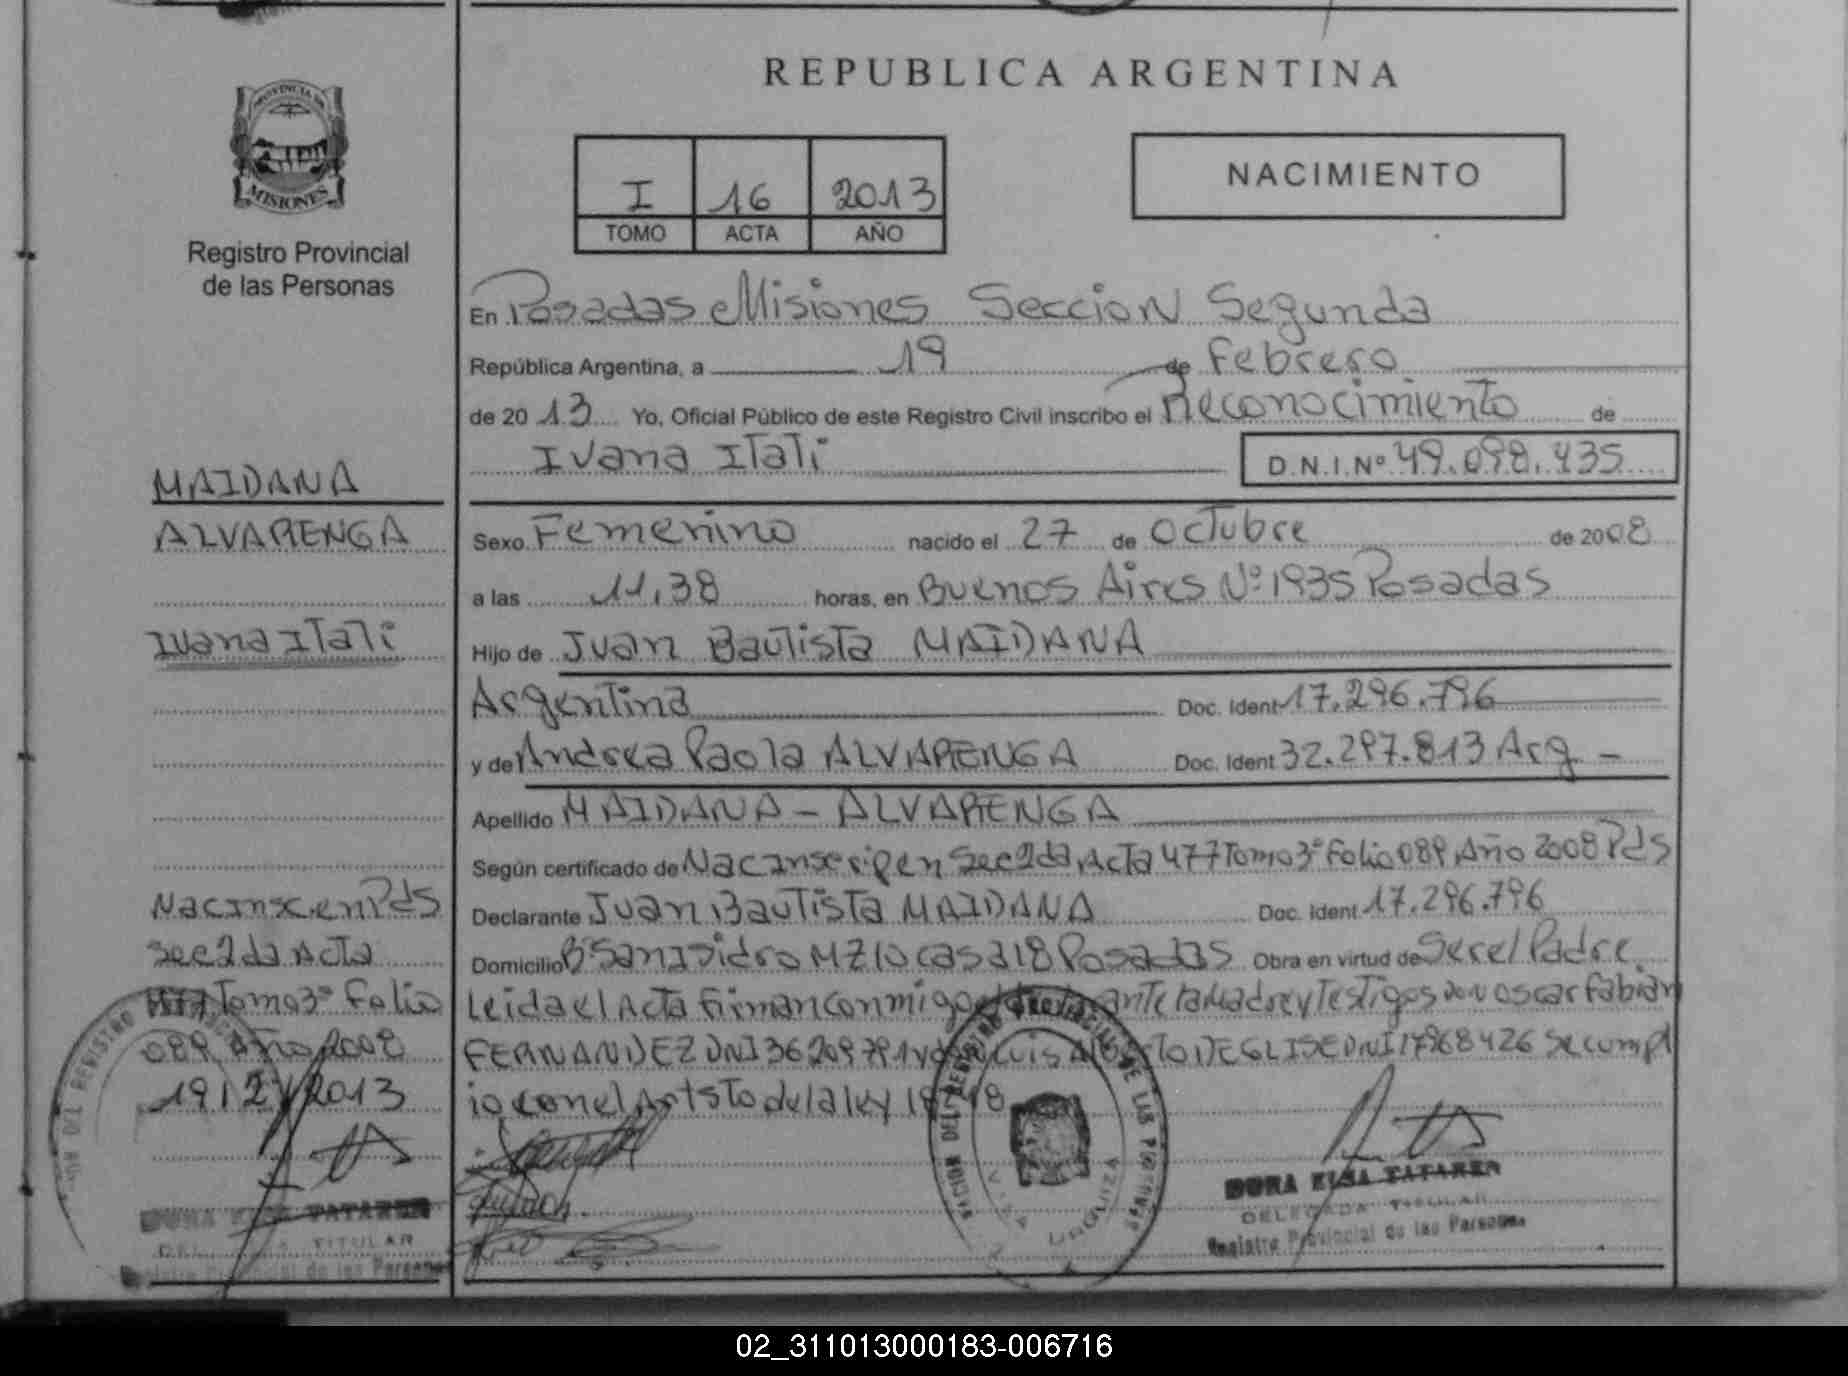 REPUBLICA ARGENTINA
PROVINCIA DE
MISIONES
Registro Provincial
de las Personas
I 16 2013
TOMO ACTA AÑO
NACIMIENTO
En Posadas Misiones Seccion Segunda
República Argentina, a 19 de Febrero
de 2013 Yo, Oficial Público de este Registro Civil inscribo el Reconocimiento de
Ivana Itati D.N.I.Nº 49.098.435
Sexo Femenino nacido el 27 de Octubre de 2008
a las 11,38 horas, en Buenos Aires Nº 1935 Posadas
Hijo de Juan Bautista MAIDANA
Argentina Doc. Ident 17.296.796
y de Andrea Paola ALVARENGA Doc. Ident 32.297.813 Arg -
Apellido MAIDANA - ALVARENGA
Según certificado de Nac Inscrip en Sec 2da, Acta 477 Tomo 3º Folio 089, Año 2008 Pds
Declarante Juan Bautista MAIDANA Doc. Ident 17.296.796
Domicilio Bº San Isidro MZ 10 casa 18 Posadas Obra en virtud de Ser el Padre
Leida el Acta firman conmigo el declarante la Madre y Testigos Don Oscar Fabian
FERNANDEZ DNI 36209791 y Don Luis Alberto DEGLISE DNI 17968426 Se cumpl
io con el Art 5to de la ley 18248
MAIDANA
ALVARENGA
Ivana Itati
Nac Insc. en Pds
Sec 2da Acta
477 Tomo 3º Folio
089 Año 2008
19/2/2013
DELEGADA TITULAR
Registro Provincial de las Personas
DORA ELSA TATAREN
DELEGADA TITULAR
Registro Provincial de las Personas
VILLA URQUIZA
02_311013000183-006716